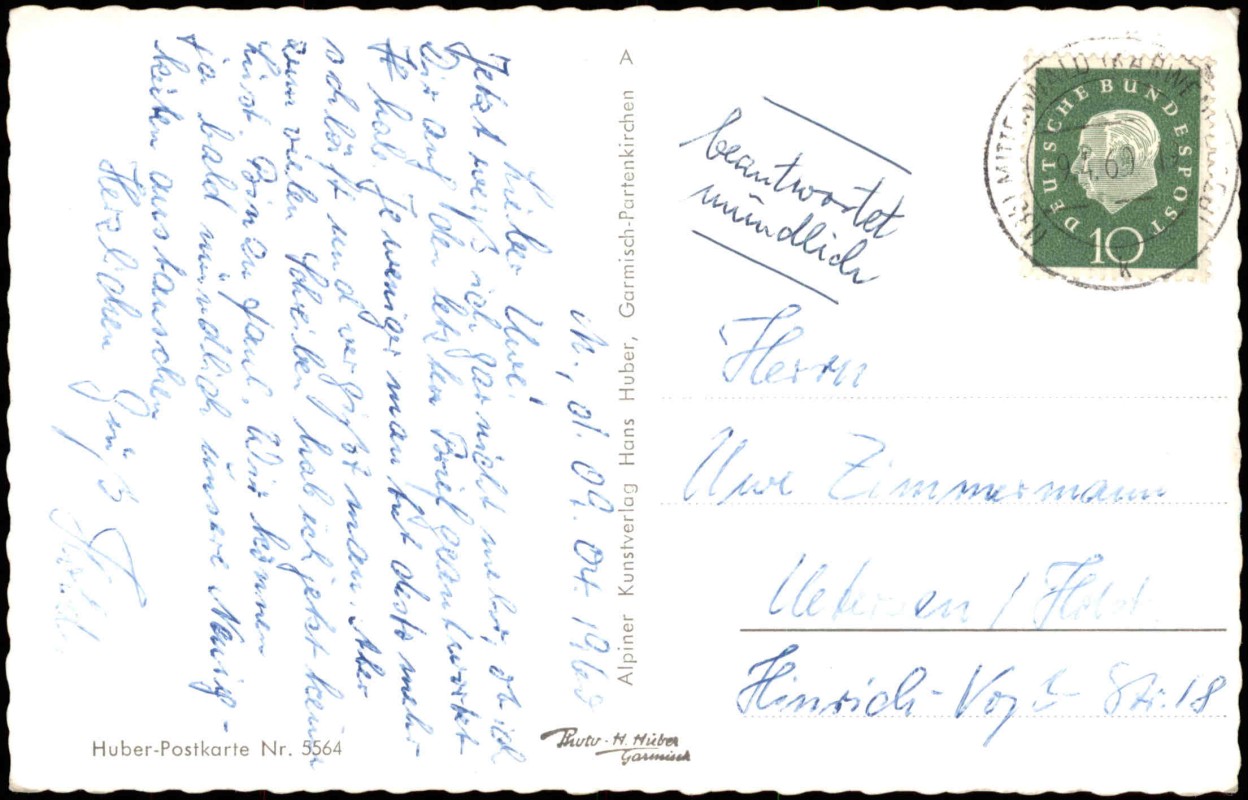 M., d. 09. 04. 1960
Lieber Uwe!
Jetzt weiß ich gar nicht mehr, ob ich
Dir auf den letzten Brief geantwortet
hab. Je weniger man tut desto mehr
schläft und vergißt man. Aber
zum vielen Schreiben hab ich jetzt keine
Lust. Bin zu faul. Wir können
ja bald mündlich unsere Neuig-
keiten austauschen
Herzlichen Gruß
A
Alpiner Kunstverlag Hans Huber, Garmisch-Partenkirchen
Huber-Postkarte Nr. 5564
Photo-H. Huber
Garmisch
beantwortet
mündlich
DEUTSCHE BUNDESPOST
10
MITTENWALD (KARWENDELGEB)
Herrn
Uwe Zimmermann
Uetersen / Holst.
Hinrich-Vogt-Str. 18